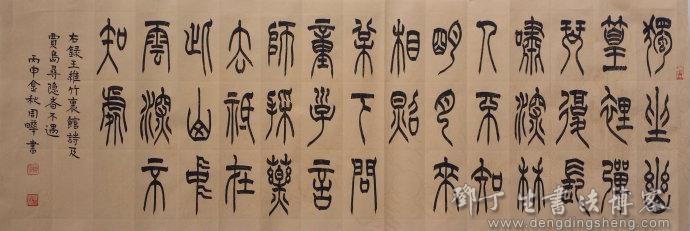 獨坐幽
篁裡彈
琴復長
嘯深林
人不知
明月來
相照
松下問
童子言
師採藥
去祇在
此山中
雲深不
知處
右錄王維竹裏館詩及
賈島尋隱者不遇
丙申金秋周曄書
鄧丁生書法博客
www.dengdingsheng.com